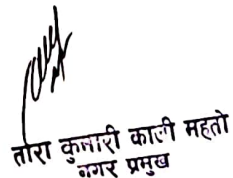 तोरा कुमारी काली महतो
नगर प्रमुख